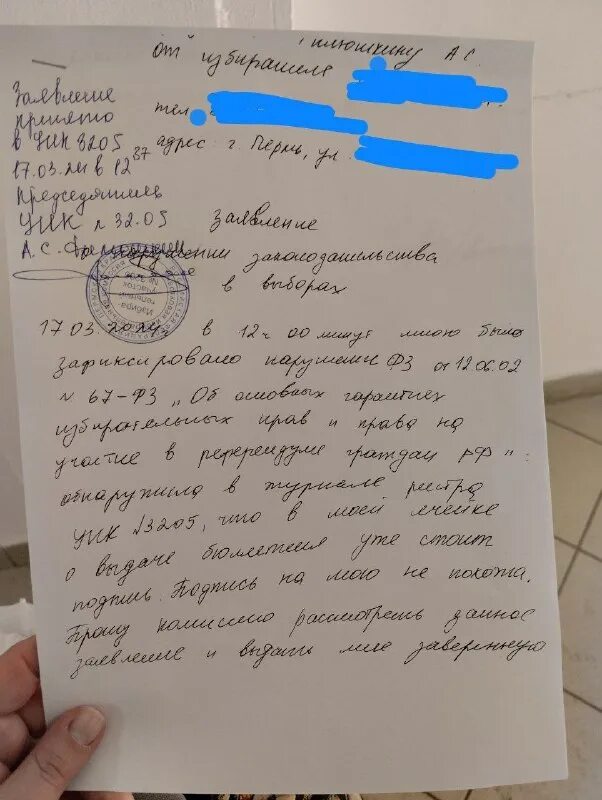 Плюшкину А С.
от избирателя
тел.
адрес: г. Пермь, ул.
Заявление
принято
в УИК 3205
17.03.24 в 12 37
Председатель
УИК № 32.05
А.С.
Заявление
о нарушении законодательства
в выборах
17.03.2024 в 12ч 00 минут мною было
зафиксировано нарушение ФЗ от 12.06.02
№ 67-ФЗ „Об основных гарантиях
избирательных прав и права на
участие в референдуме граждан РФ":
обнаружила в журнале реестра
УИК №3205, что в моей ячейке
о выдаче бюллетеня уже стоит
подпись. Подпись на мою не похожа.
Прошу комиссию рассмотреть данное
заявление и выдать мне заверенную